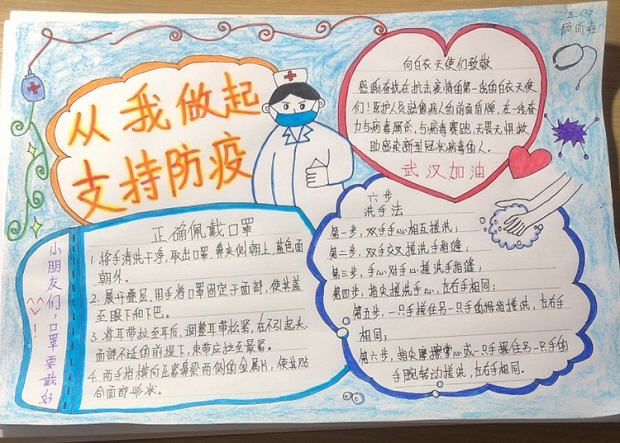 从我做起
支持防疫
向白衣天使们致敬
感谢奋战在抗击疫情的第一线的白衣天使
们！医护人员就像病人的前面盾牌，在一线奋
力与病毒厮杀，与病毒赛跑，无畏无惧救
助感染新型冠状病毒的人。
武汉加油
正确佩戴口罩
1.将手清洗干净，取出口罩，鼻夹侧朝上，蓝色面
朝外。
2.展开叠层，用手将口罩固定于面部，使其盖
至眼下和下巴。
3.将耳带拉至耳后，调整耳带松紧，在不引起夹
面部不适的前提下，夹带应拉至最紧。
4.两手指横向压紧鼻梁两侧的金属片，使其贴
合面部形状。
小朋友们，口罩要戴好
！
六步
洗手法
第一步，双手手心相互搓洗；
第二步，双手交叉搓洗手指缝；
第三步，手心对手心搓洗手指缝；
第四步，指尖搓洗手心，左右手相同；
第五步，一只手握住另一只手的拇指搓洗，左右手
相同；
第六步，指尖摩擦掌心或一只手握住另一只手的
手腕转动搓洗，左右手相同。